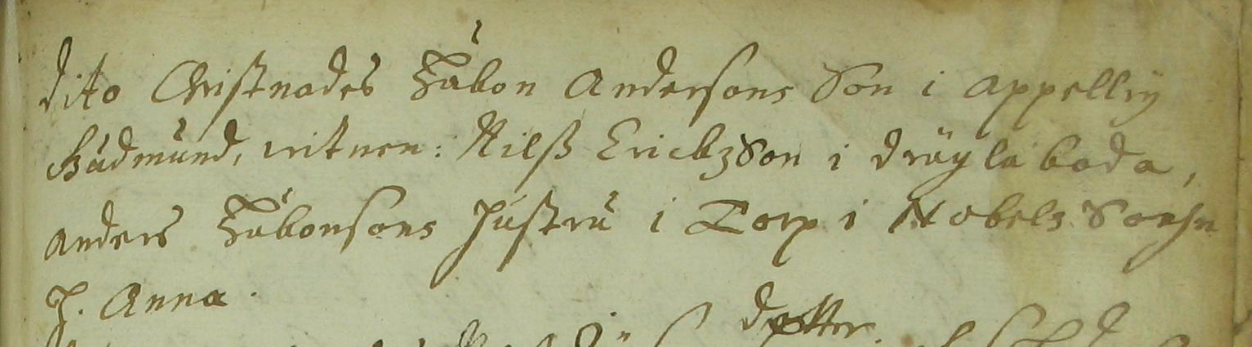 dito Christnades Håbon Andersons Son i Appellry
Gudmund, witnen: Nilß Erickzson i dräglaboda,
anders Håbonsons hustru i Torp i Nobelz Sochn
h. Anna.
dotter